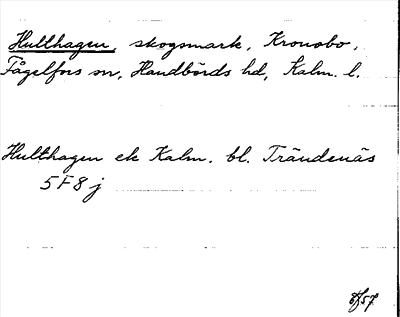 Hullhagen, skogsmark, Kronobo,
Fågelfors sn, Handbörds hd, Kalm. l.
Hulthagen ek Kalm. bl. Trändenäs
5F8j